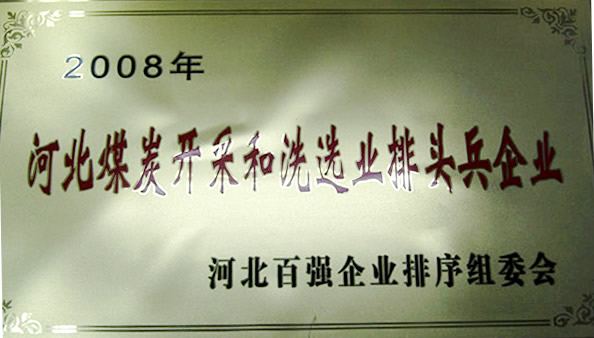 2008年
河北煤炭开采和洗选业排头兵企业
河北百强企业排序组委会